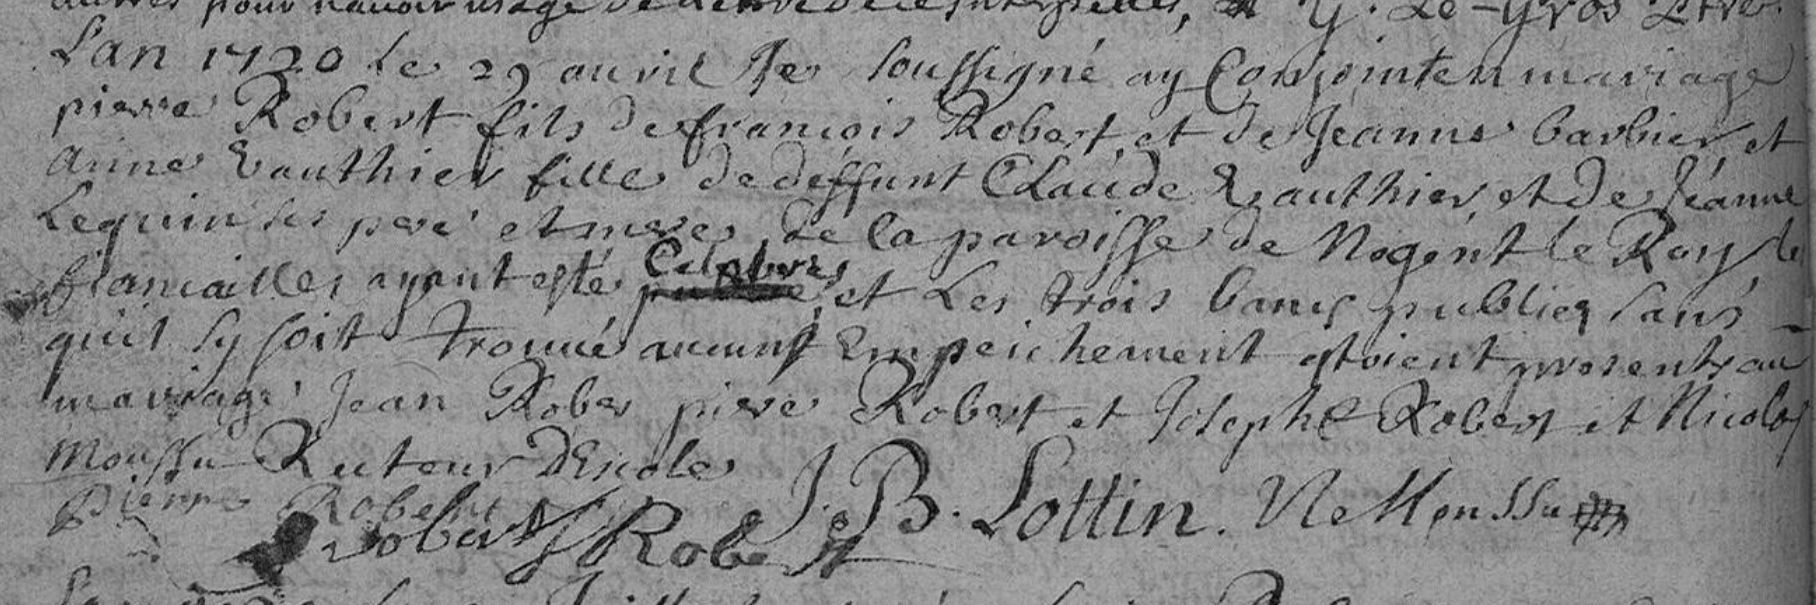 autres pour n'avoir usage de G. Le-Gros Ptre.
L'an 1720 Le 29 auvril Je soussigné ay Conjoint en mariage
pierre Robert fils de françois Robert et de Jeanne barbier et
anne Vauthier fille de deffunt Claude Vauthier et de Jeanne
Lequin ses peré et mere de la paroisse de Nogent le Roy le
fiancailles ayant esté Celebrres et Les trois bancs publiez sans
quil sy soit trouué aucuns Empeichement estoient presents au
mariage Jean Rober piere Robert et Joseph Robert et Nicolas
Moussu Recteur D'Escole
Pierre Robert J. B. Lottin. N Moussu
Robert J Robert